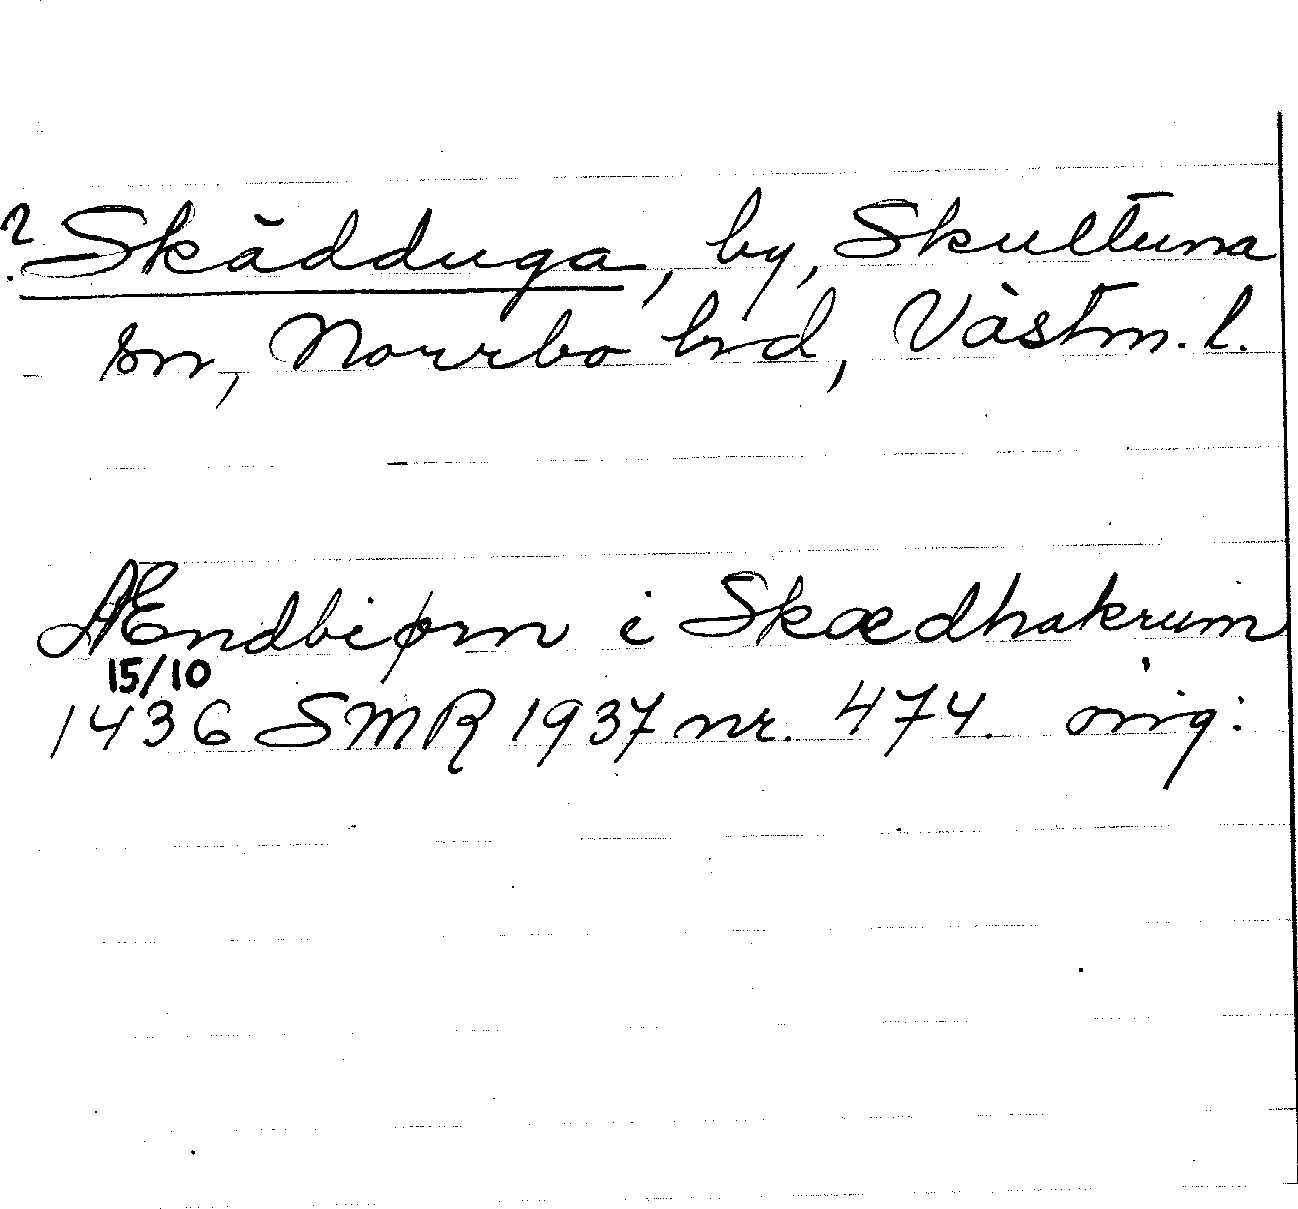 ? Skädduga, by, Skultuna
sn, Norrbo hrd, Västm. l.
Ændbiørn i Skædhakrum
15/10
1436 SMR 1937 nr. 474. orig: